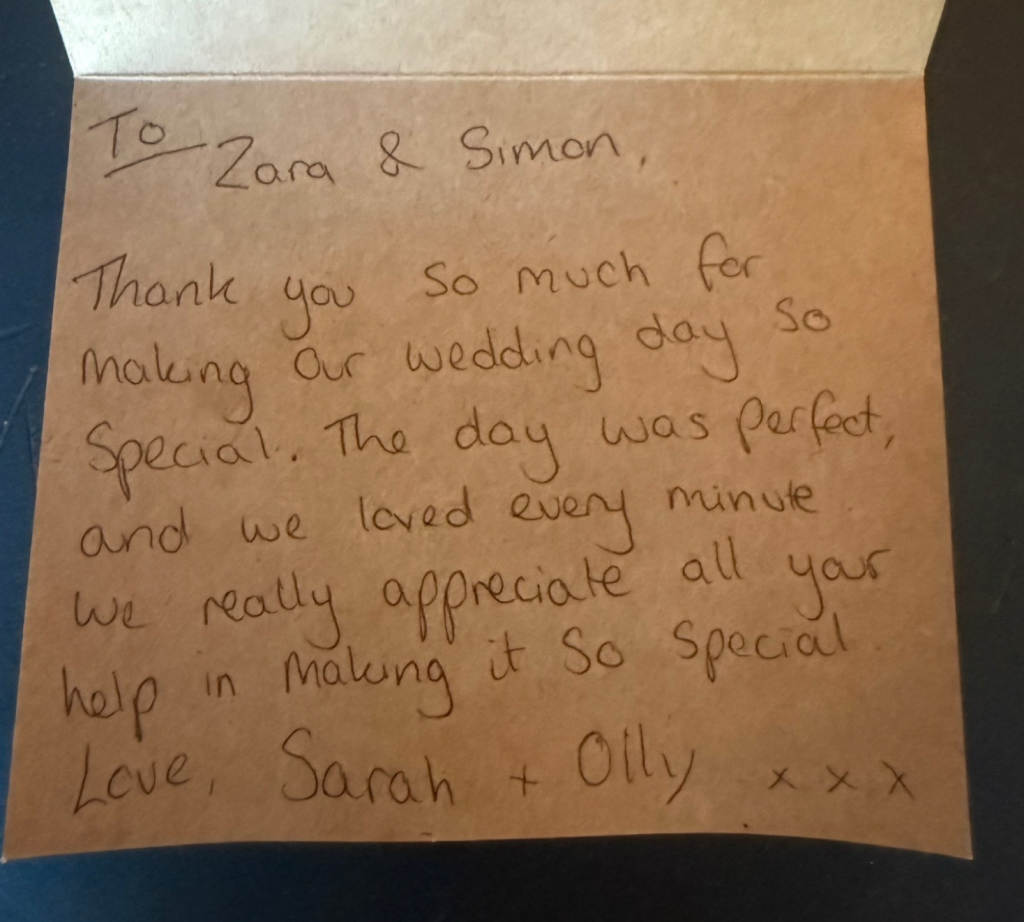 To Zara & Simon,
Thank you so much for
making our wedding day so
special. The day was perfect,
and we loved every minute.
We really appreciate all your
help in making it so special.
Love, Sarah + Olly x x x